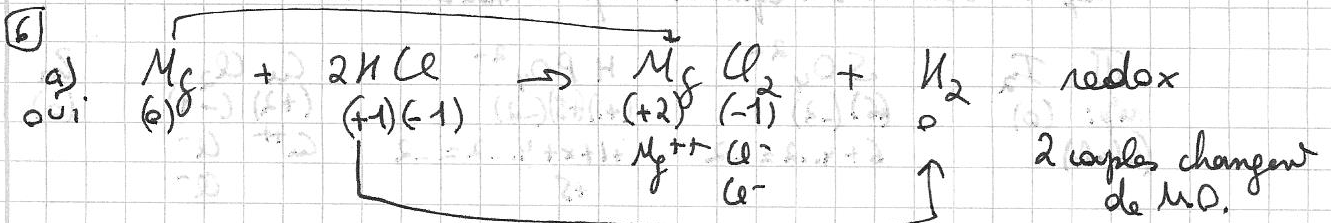 6
a) Mg + 2HCl → MgCl₂ + H₂ redox
oui (0) (+1)(-1) (+2) (-1) 0
Mg++ Cl- 2 couples changent
Cl- de NO.